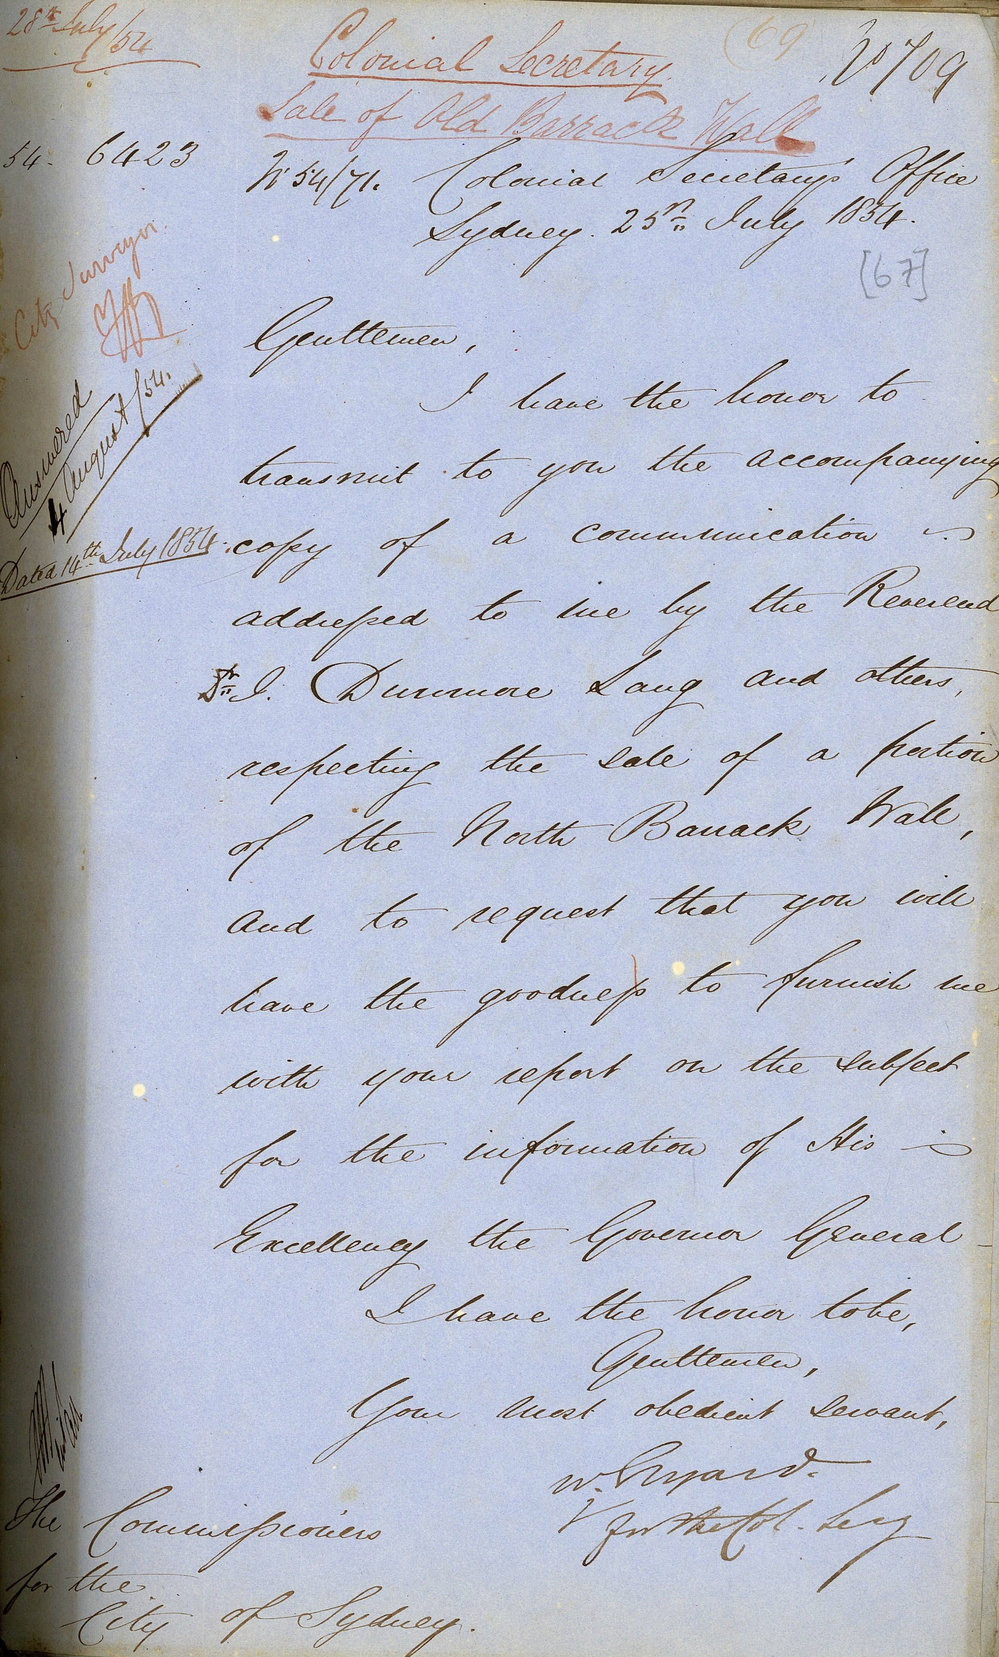 28th July/54
Colonial Secretary
69
No 709
Sale of Old Barrack Wall
54. 6423
No 54/71. Colonial Secretary's Office
Sydney. 25th July 1854.
[67]
City Surveyor
Gentlemen,
I have the honor to
Answered
4 August/54.
transmit to you the accompanying
Dated 14th July 1854.
copy of a communication
addressed to me by the Reverend
Dr. J. Dunmore Lang and others,
respecting the sale of a portion
of the North Barrack Wall,
and to request that you will
have the goodness to furnish me
with your report on the subject
for the information of His
Excellency the Governor General
I have the honor to be,
Gentlemen,
Your most obedient servant,
W. Elyard.
for the Col. Secy
The Commissioners
for the
City of Sydney.